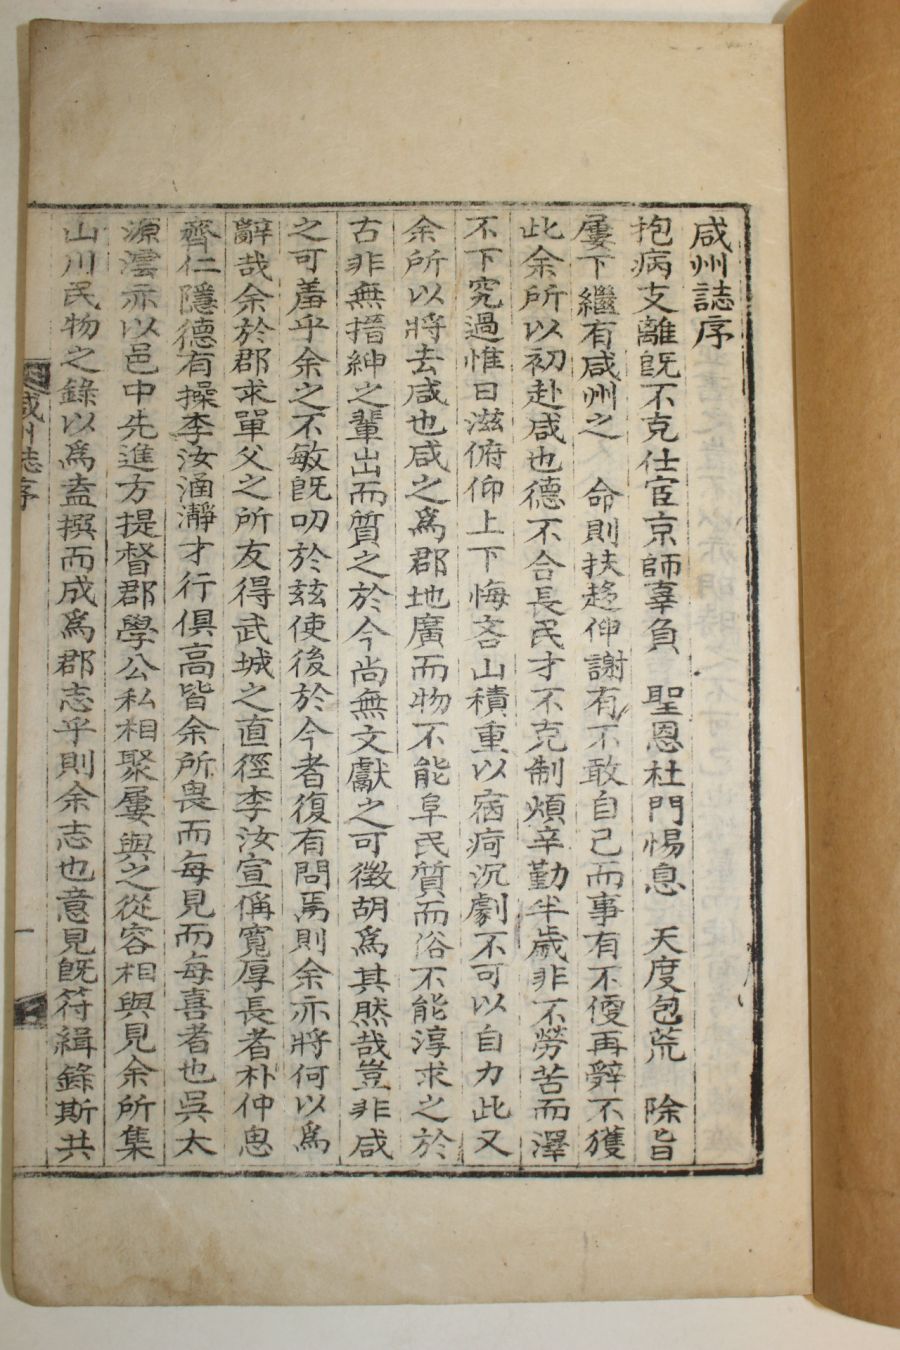 咸州誌序
抱病支離旣不克仕宦京師辜負 聖恩杜門惕息 天度包荒 除旨
屢下繼有咸州之 命則扶趍伸謝有不敢自己而事有不優再辭不獲
此余所以初赴咸也德不合長民才不克制煩辛勤半歲非不勞苦而澤
不下究過惟日滋俯仰上下悔吝山積重以痾疴沉劇不可以自力此又
余所以將去咸也咸之爲郡地廣而物不能阜民質而俗不能淳求之於
古非無搢紳之輩出而質之於今尚無文獻之可徵胡爲其然哉豈非咸
之可羞乎余之不敏旣叨於玆使後於今者復有問焉則余亦將何以爲
辭哉余於郡求單父之所友得武城之直徑李汝宣偁寬厚長者朴仲思
齊仁隱德有操李汝涵瀞才行俱高皆余所畏而每見而每喜者也吳太
源澐亦以邑中先進方提督郡學公私相聚屢與之從容相與見余所集
山川民物之錄以爲盍撰而成爲郡志乎則余志也意見旣符緝錄斯共
咸州誌序
一